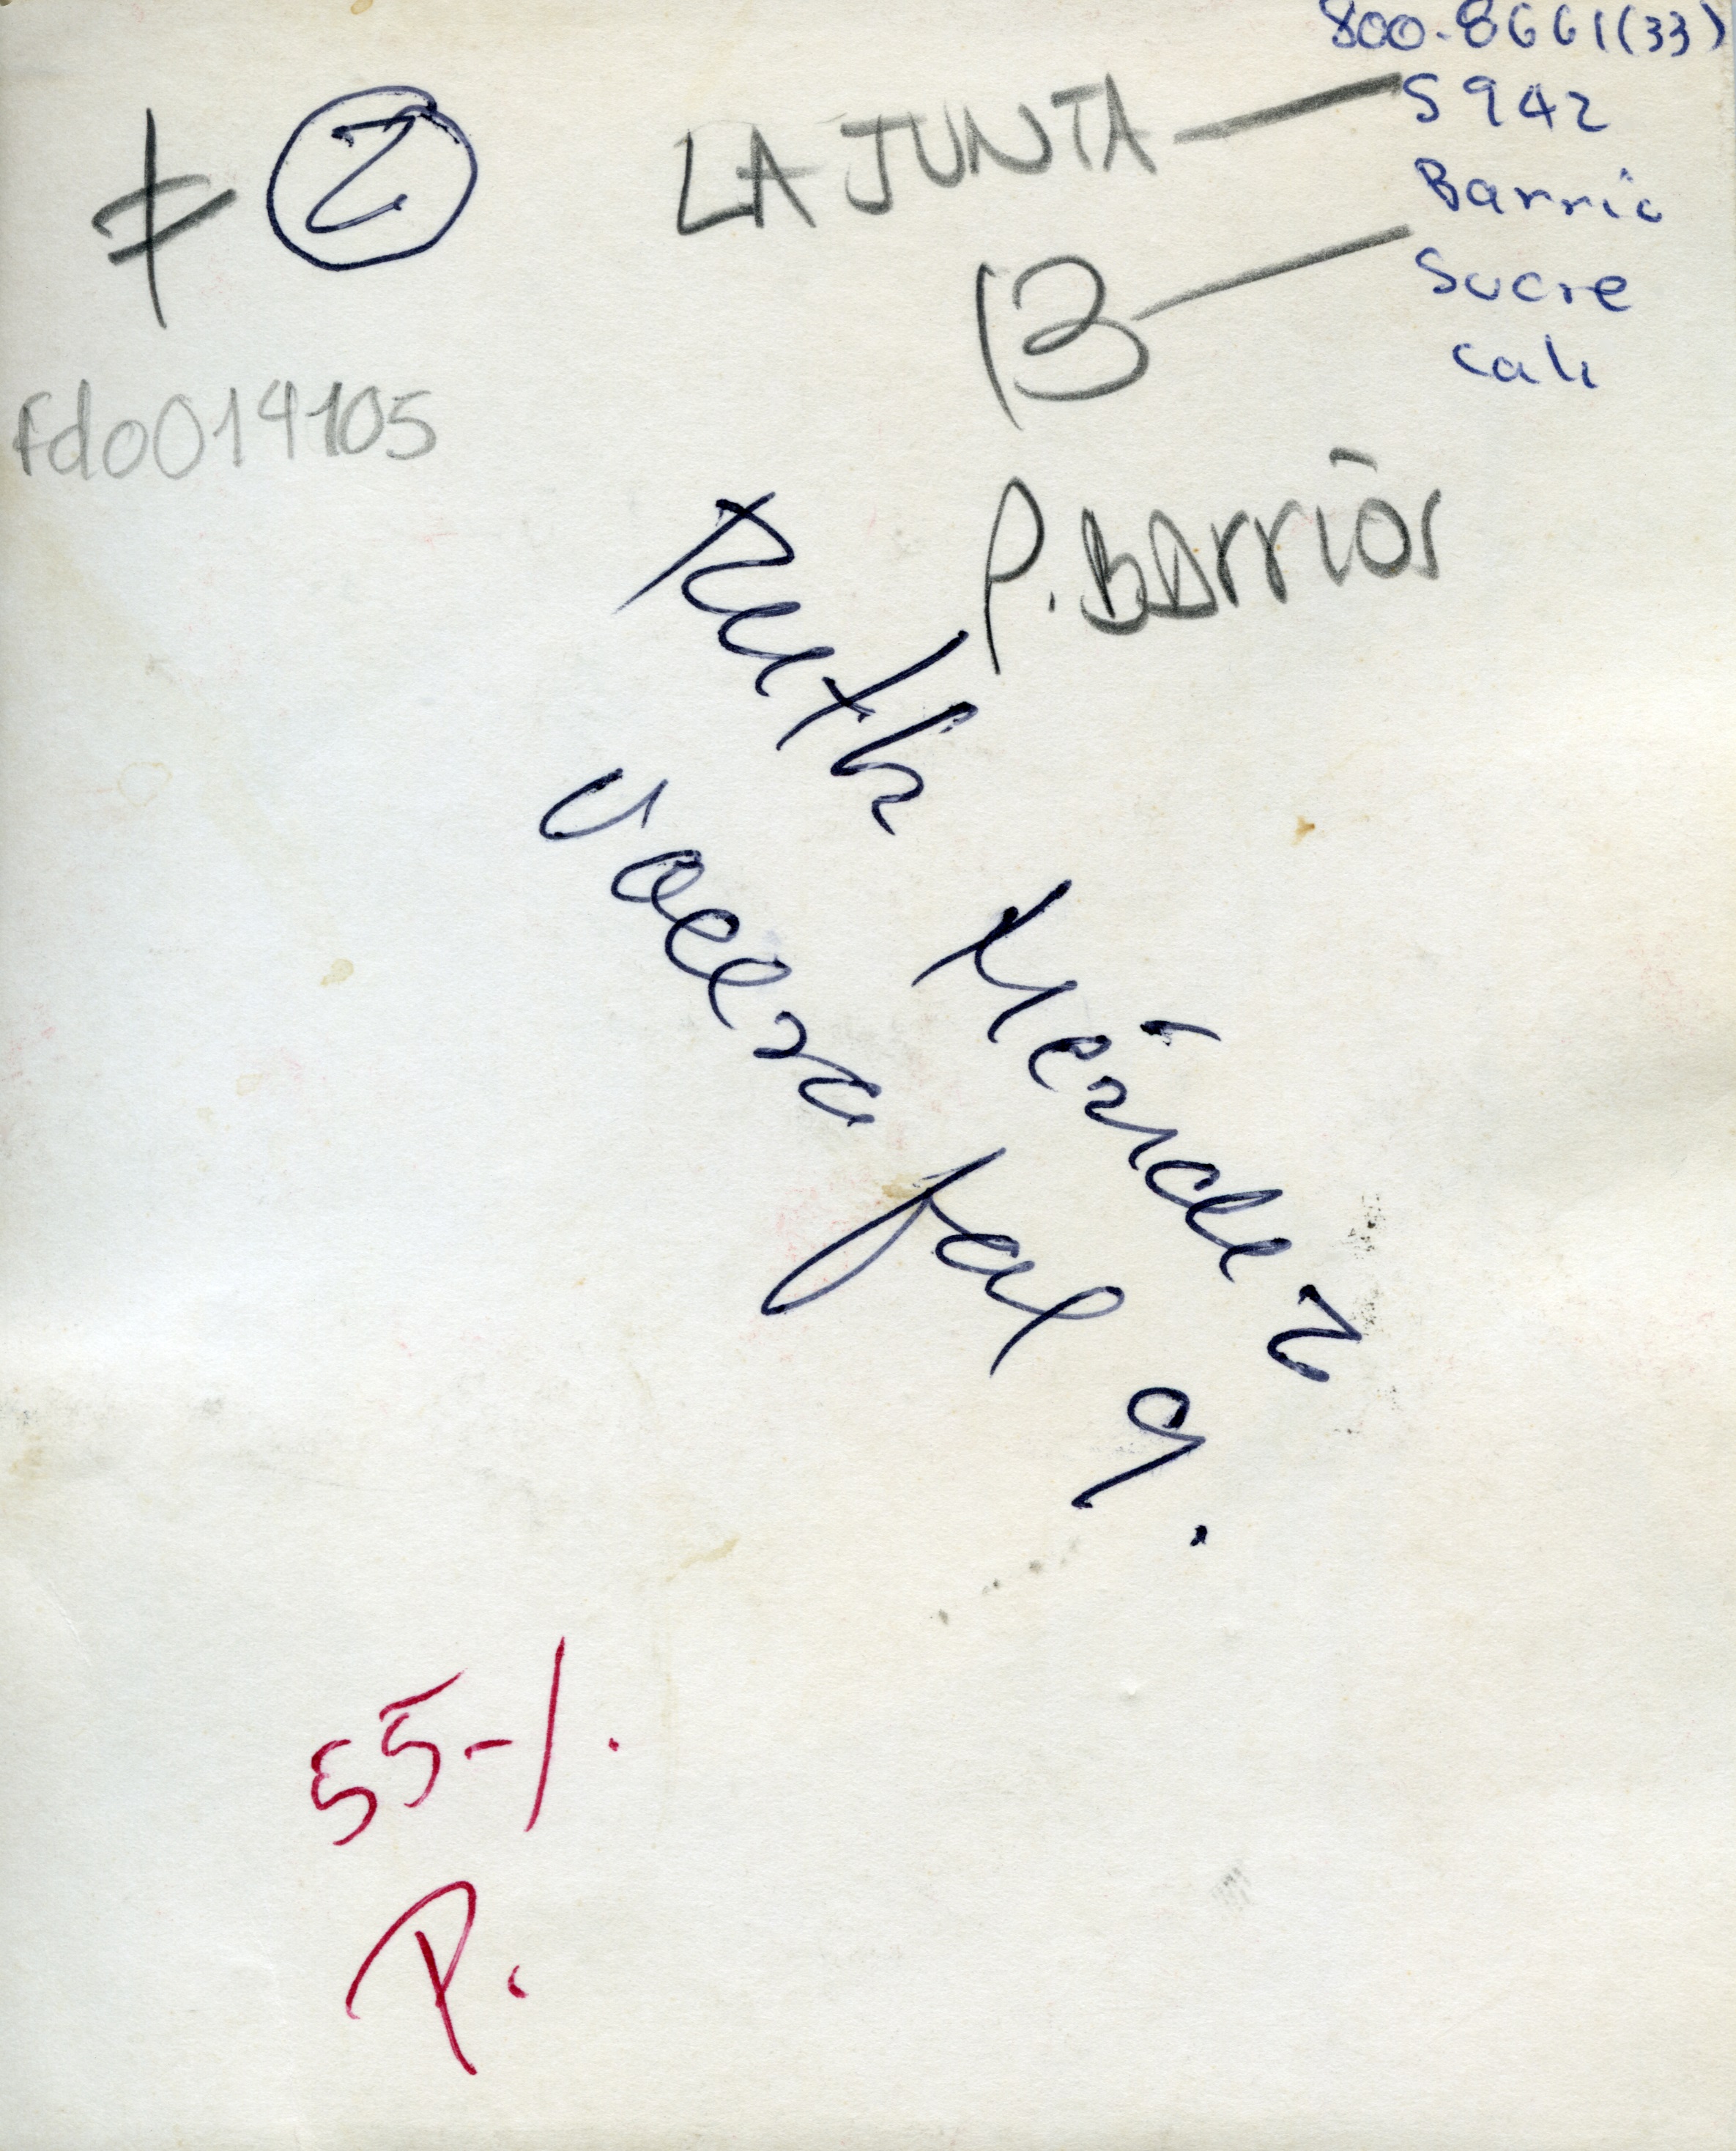 800-8661(33)
S942
Barrio
Sucre
Cali
≠ 2
LA JUNTA
13
fdo019105
P. BArrior
Ruth Méndez
Vocera fal 9.
55-1.
P.